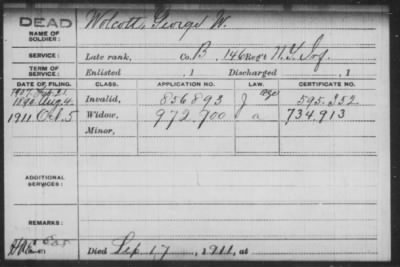 DEAD
NAME OF SOLDIER:
Wolcott, George W.
SERVICE:
Late rank, Co. B, 146 Reg't N.Y. Inf.
TERM OF SERVICE:
Enlisted , 1 Discharged , 1
DATE OF FILING. CLASS. APPLICATION NO. LAW. CERTIFICATE NO.
1907
1890 Aug. 4. Invalid, 856893 J 595.352
1911 Oct. 5 Widow, 972.700 a 734.913
Minor,
ADDITIONAL SERVICES:
REMARKS:
Died Sep. 17, 1911, at